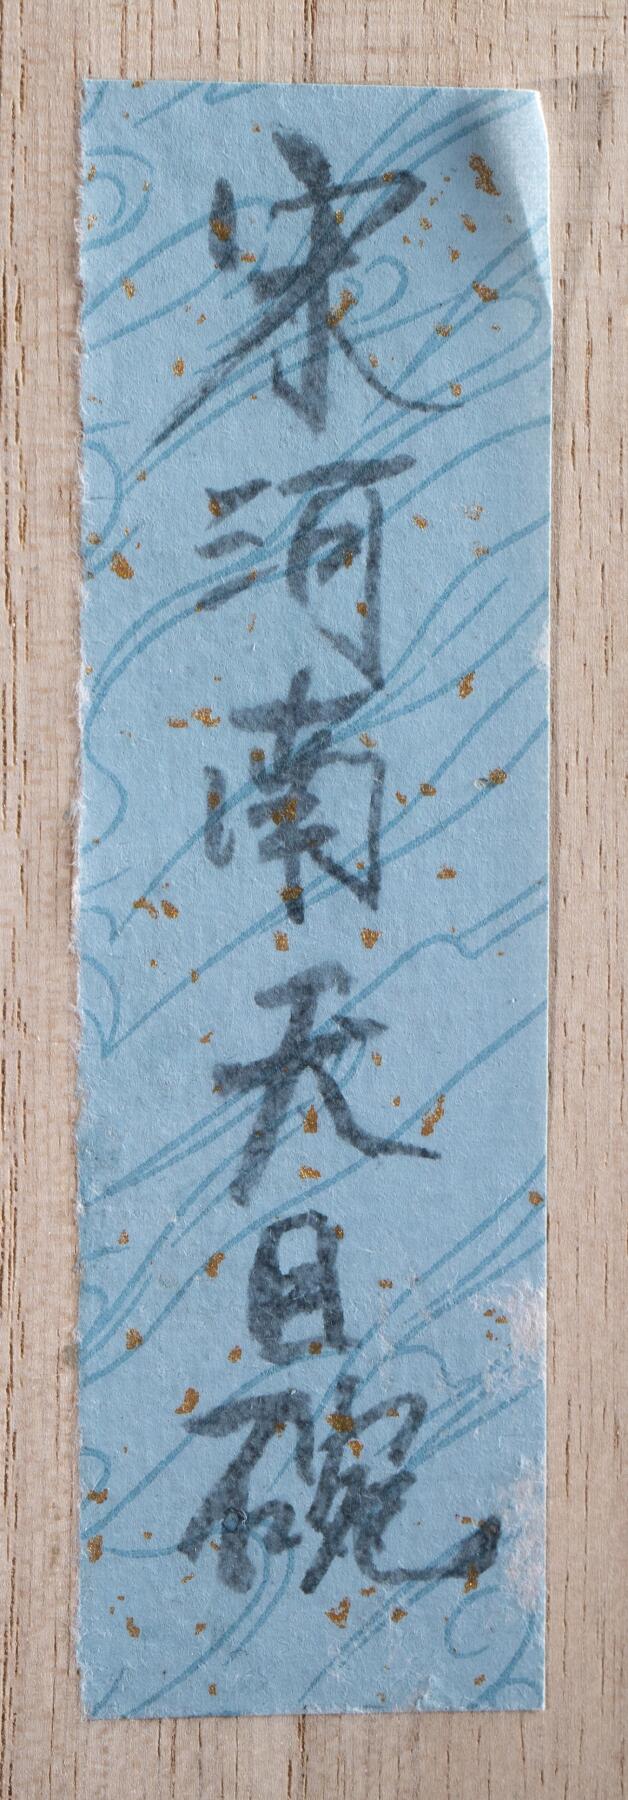 宋河南天目碗